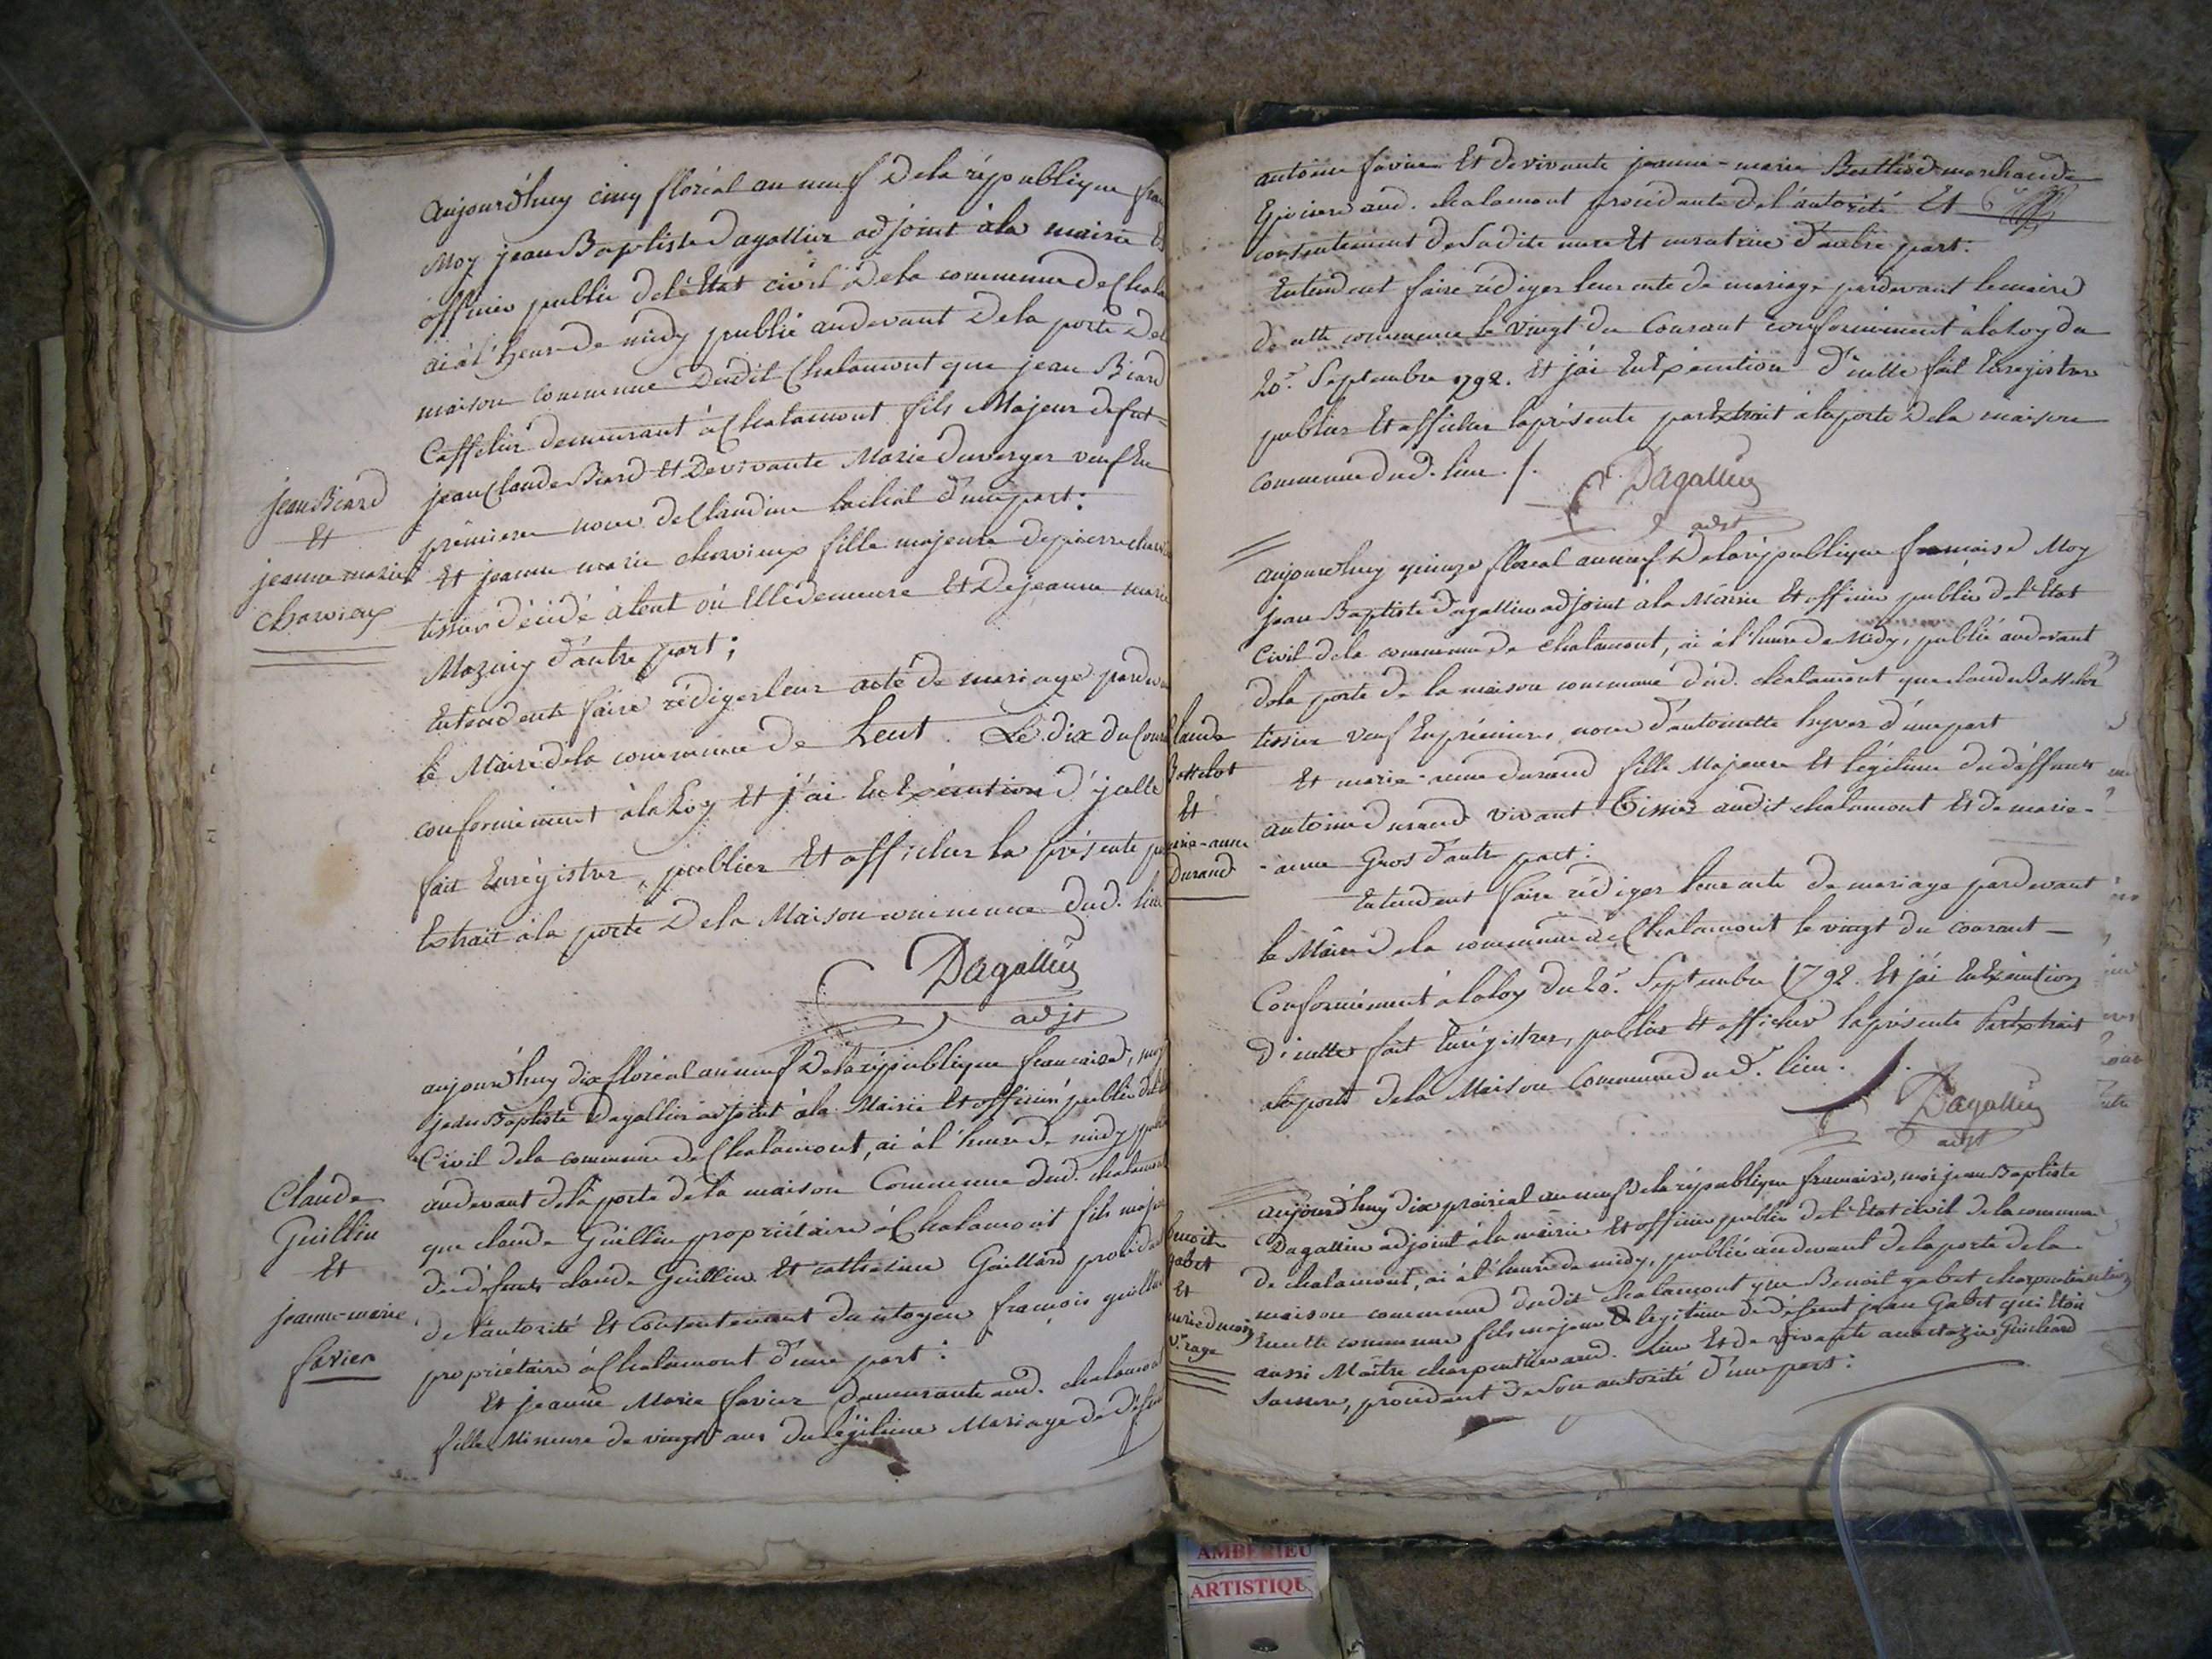 Aujourd'huy cinq floréal an neuf de la république fran
Moy jean Baptiste Dagallier adjoint à la mairie Et
officier public de l'Etat civil de la commune de Chala
ai à l'heure de midy publié audevant de la porte de
maison commune dudit Chalamont que jean Biard
demeurant à Chalamont fils Majeur de fut=
jean Claude Biard Et De vivante Marie Duverger veuf En
premiere noce de Claudine d'une part:
jean Biard
Et
jeanne marie
charvieux
Et jeanne marie charvieux fille majeure de pierre charv
tissier décédé à lent où Elle demeure Et De jeanne marie
Mazuiy d'autre part;
Entendent faire rédiger leur acte de mariage pardeva
le Maire de la commune de Lent. Le dix du Coura
conformément à la Loy Et j'ai En Exécution d'jcelle
fait Enrégistrer, publier Et afficher la présente pa
Extrait à la porte De la Maison commune dud. lieu
Dagallier
adjt
aujourd'huy dix floréal an neuf De la république francaise, moy
jean Baptiste Dagallier adjoint à la Mairie Et officier public de l'
Civil de la commune de Chalamont, ai à l'heure de midy, publié
audevant de la porte de la maison Commune dud. chalamont
Claude
Guillin
Et
jeanne-marie
favier
que claude Guillin propriétaire à Chalamont fils majeur
de défunts claude Guillin Et catherine Gaillard procédant
de l'autorité Et Consentement du citoyen françois guillin
propriétaire à Chalamont d'une part:
Et jeanne Marie favier demeurante aud. chalamont
fille Mineure de vingt ans du légitime Mariage de défunt
antoine favier Et de vivante jeanne-marie marchande
Epiciere aud. chalamont procédante de l'autorité Et 6
consentement de Sadite mere Et curatrice d'autre part:
Entendent faire rédiger leur acte de mariage pardevant le maire
de cette commune le vingt du Courant conformément à la Loy du
20.e Septembre 1792. Et j'ai En Exécution d'icelle fait Enrégistrer
publier Et afficher la présente par Extrait à la porte De la maison
commune dud. lieu ./.
Dagallier
adjt
aujourd'huy quinze floréal an neuf De la république francaise Moy
jean Baptiste Dagallier adjoint à la Mairie Et officier public de l'Etat
Civil de la commune de Chalamont, ai à l'heure de Midy, publié audevant
de la porte de la maison commune dud. chalamont que claude Bathelot
laude
Bathelot
Et
rie-anne
Durand
tissier veuf En premiere noce d'antoinette hyver d'une part
Et marie-anne durand fille Majeure Et légitime de déffunt
antoine durand vivant Tissier audit chalamont Et de marie-
-anne Gros d'autre part:
Entendent faire rédiger leur acte de mariage pardevant
le Maire de la commune de Chalamont le vingt du courant
Conformément à la Loy du 20.e Septembre 1792. Et j'ai En Exécution
d'icelle fait Enrégistrer, publier Et afficher la présente Par Extrait
à la porte de la Maison Commune dud. lieu ./.
Dagallier
adjt
aujourd'huy dix prairial an neuf de la république francaise, moi jean Baptiste
Dagallier adjoint à la mairie Et officier public de l'Etat civil de la commune
de chalamont, ai à l'heure de midy, publié audevant de la porte de la
enoit
gabet
Et
maison commune dudit chalamont que Benoit gabet charpentier
En cette commune fils majeur & légitime de défunt jean Gabet qui Etoit
aussi Maître charpentier aud. Lieu Et de vivante anastazie Guichard
Sa mere, procédant de Son autorité d'une part:
AMBERIEU
ARTISTIQU